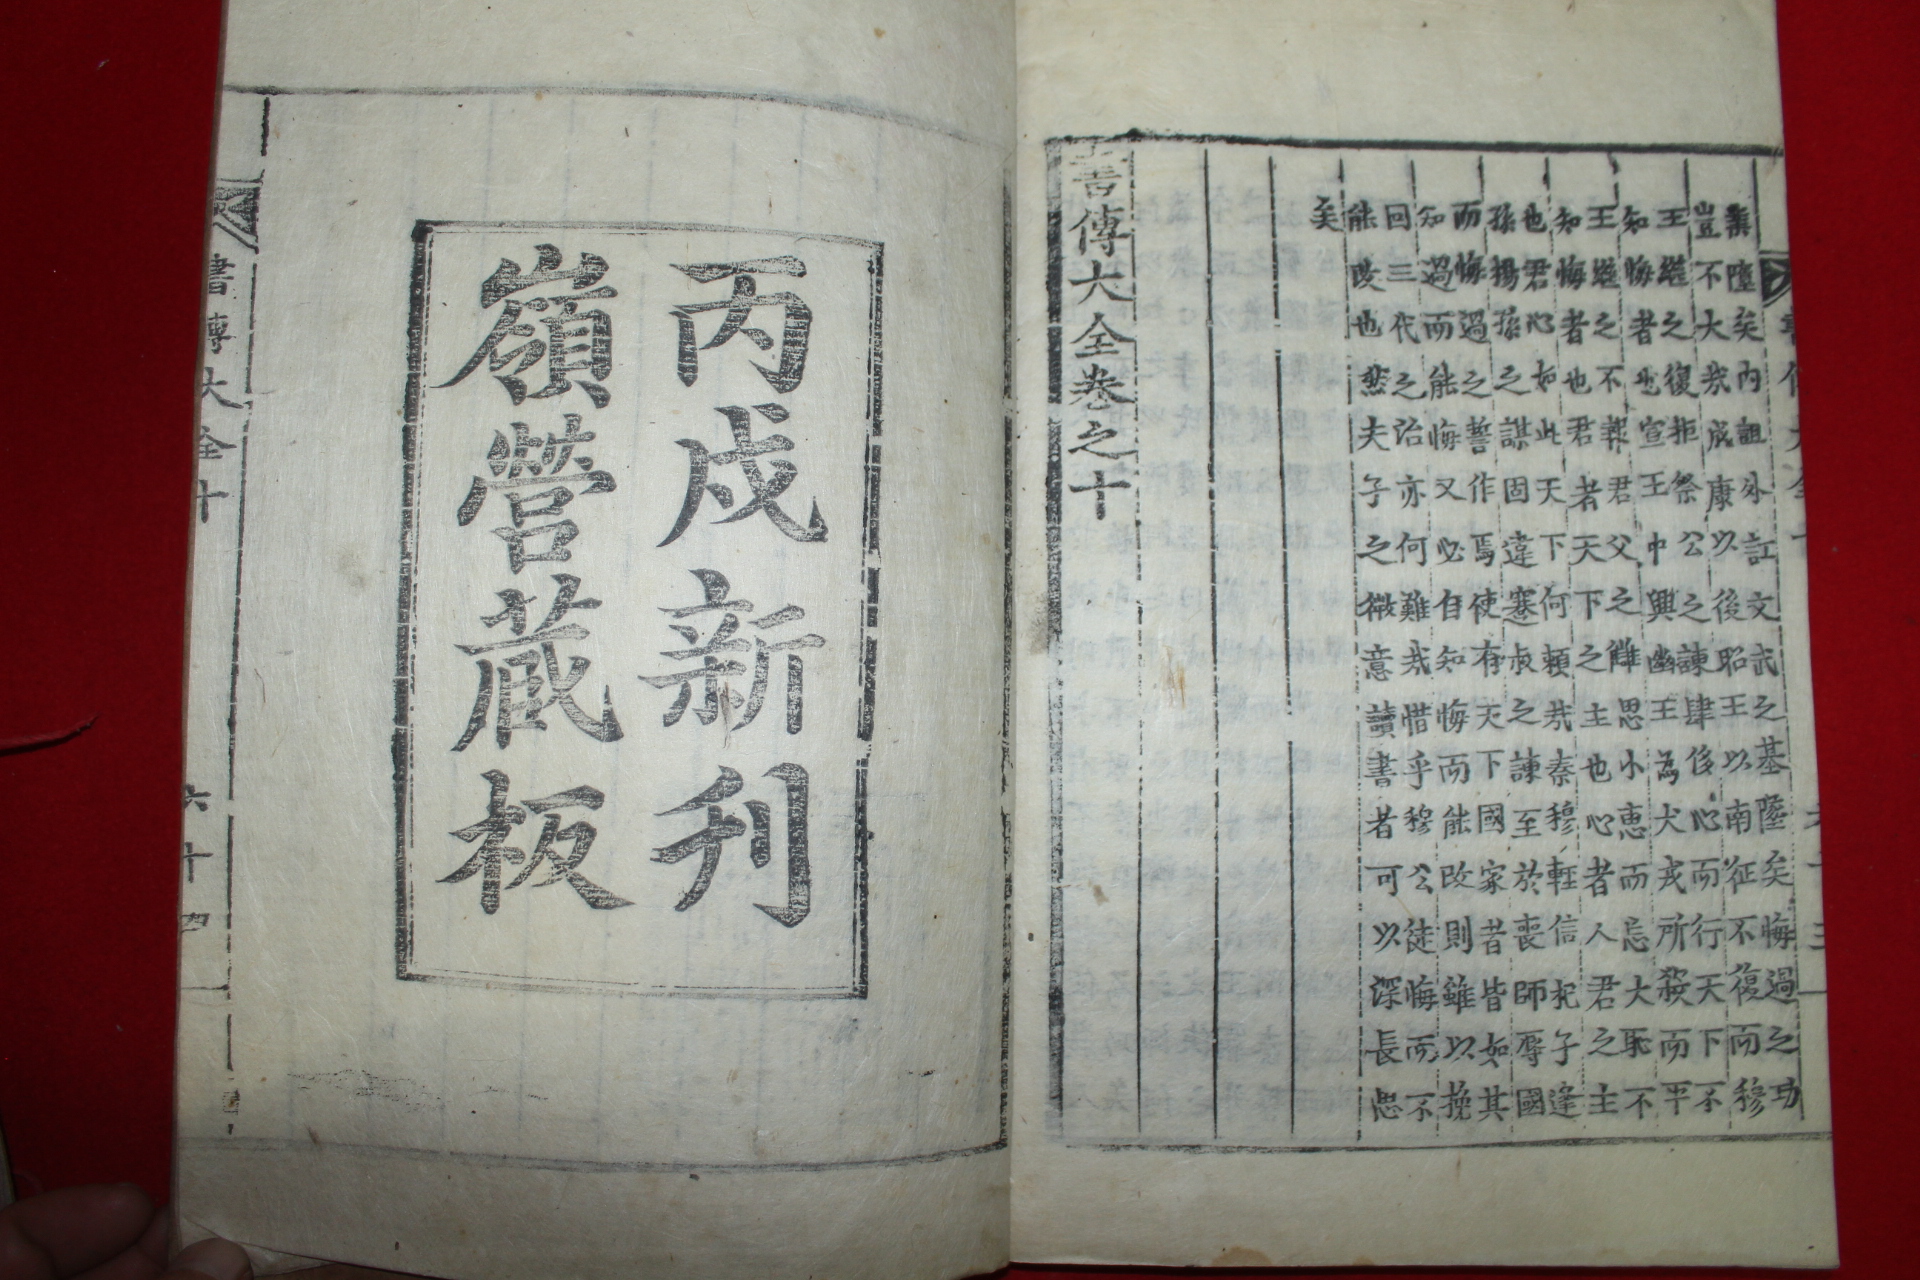 業墮矣內詛外訌文武之基墮矣悔過之功
豈不大哉成康以後昭王以南征不復而穆
王繼之復拒祭公之諫肆侈心而行天下不
知悔者也宣王中興幽王為犬戎所殺而平
王繼之不報君父之讎思小惠而忘大恥不
知悔者也君者天下之主也心者人君之主
也君心如此天下何賴哉秦穆輕信杞子逢
孫揚孫之謀固違蹇叔之諫至於喪師辱國
而悔過之誓作焉使有天下國家者皆如其
知過而能悔又必自知悔而能改則雖以挽
回三代之治亦何難哉惜乎穆公徒悔而不
能改也然夫子之微意讀書者可以深長思
矣
書傳大全卷之十
丙戌新刊
嶺營藏板
書傳大全十 六十四